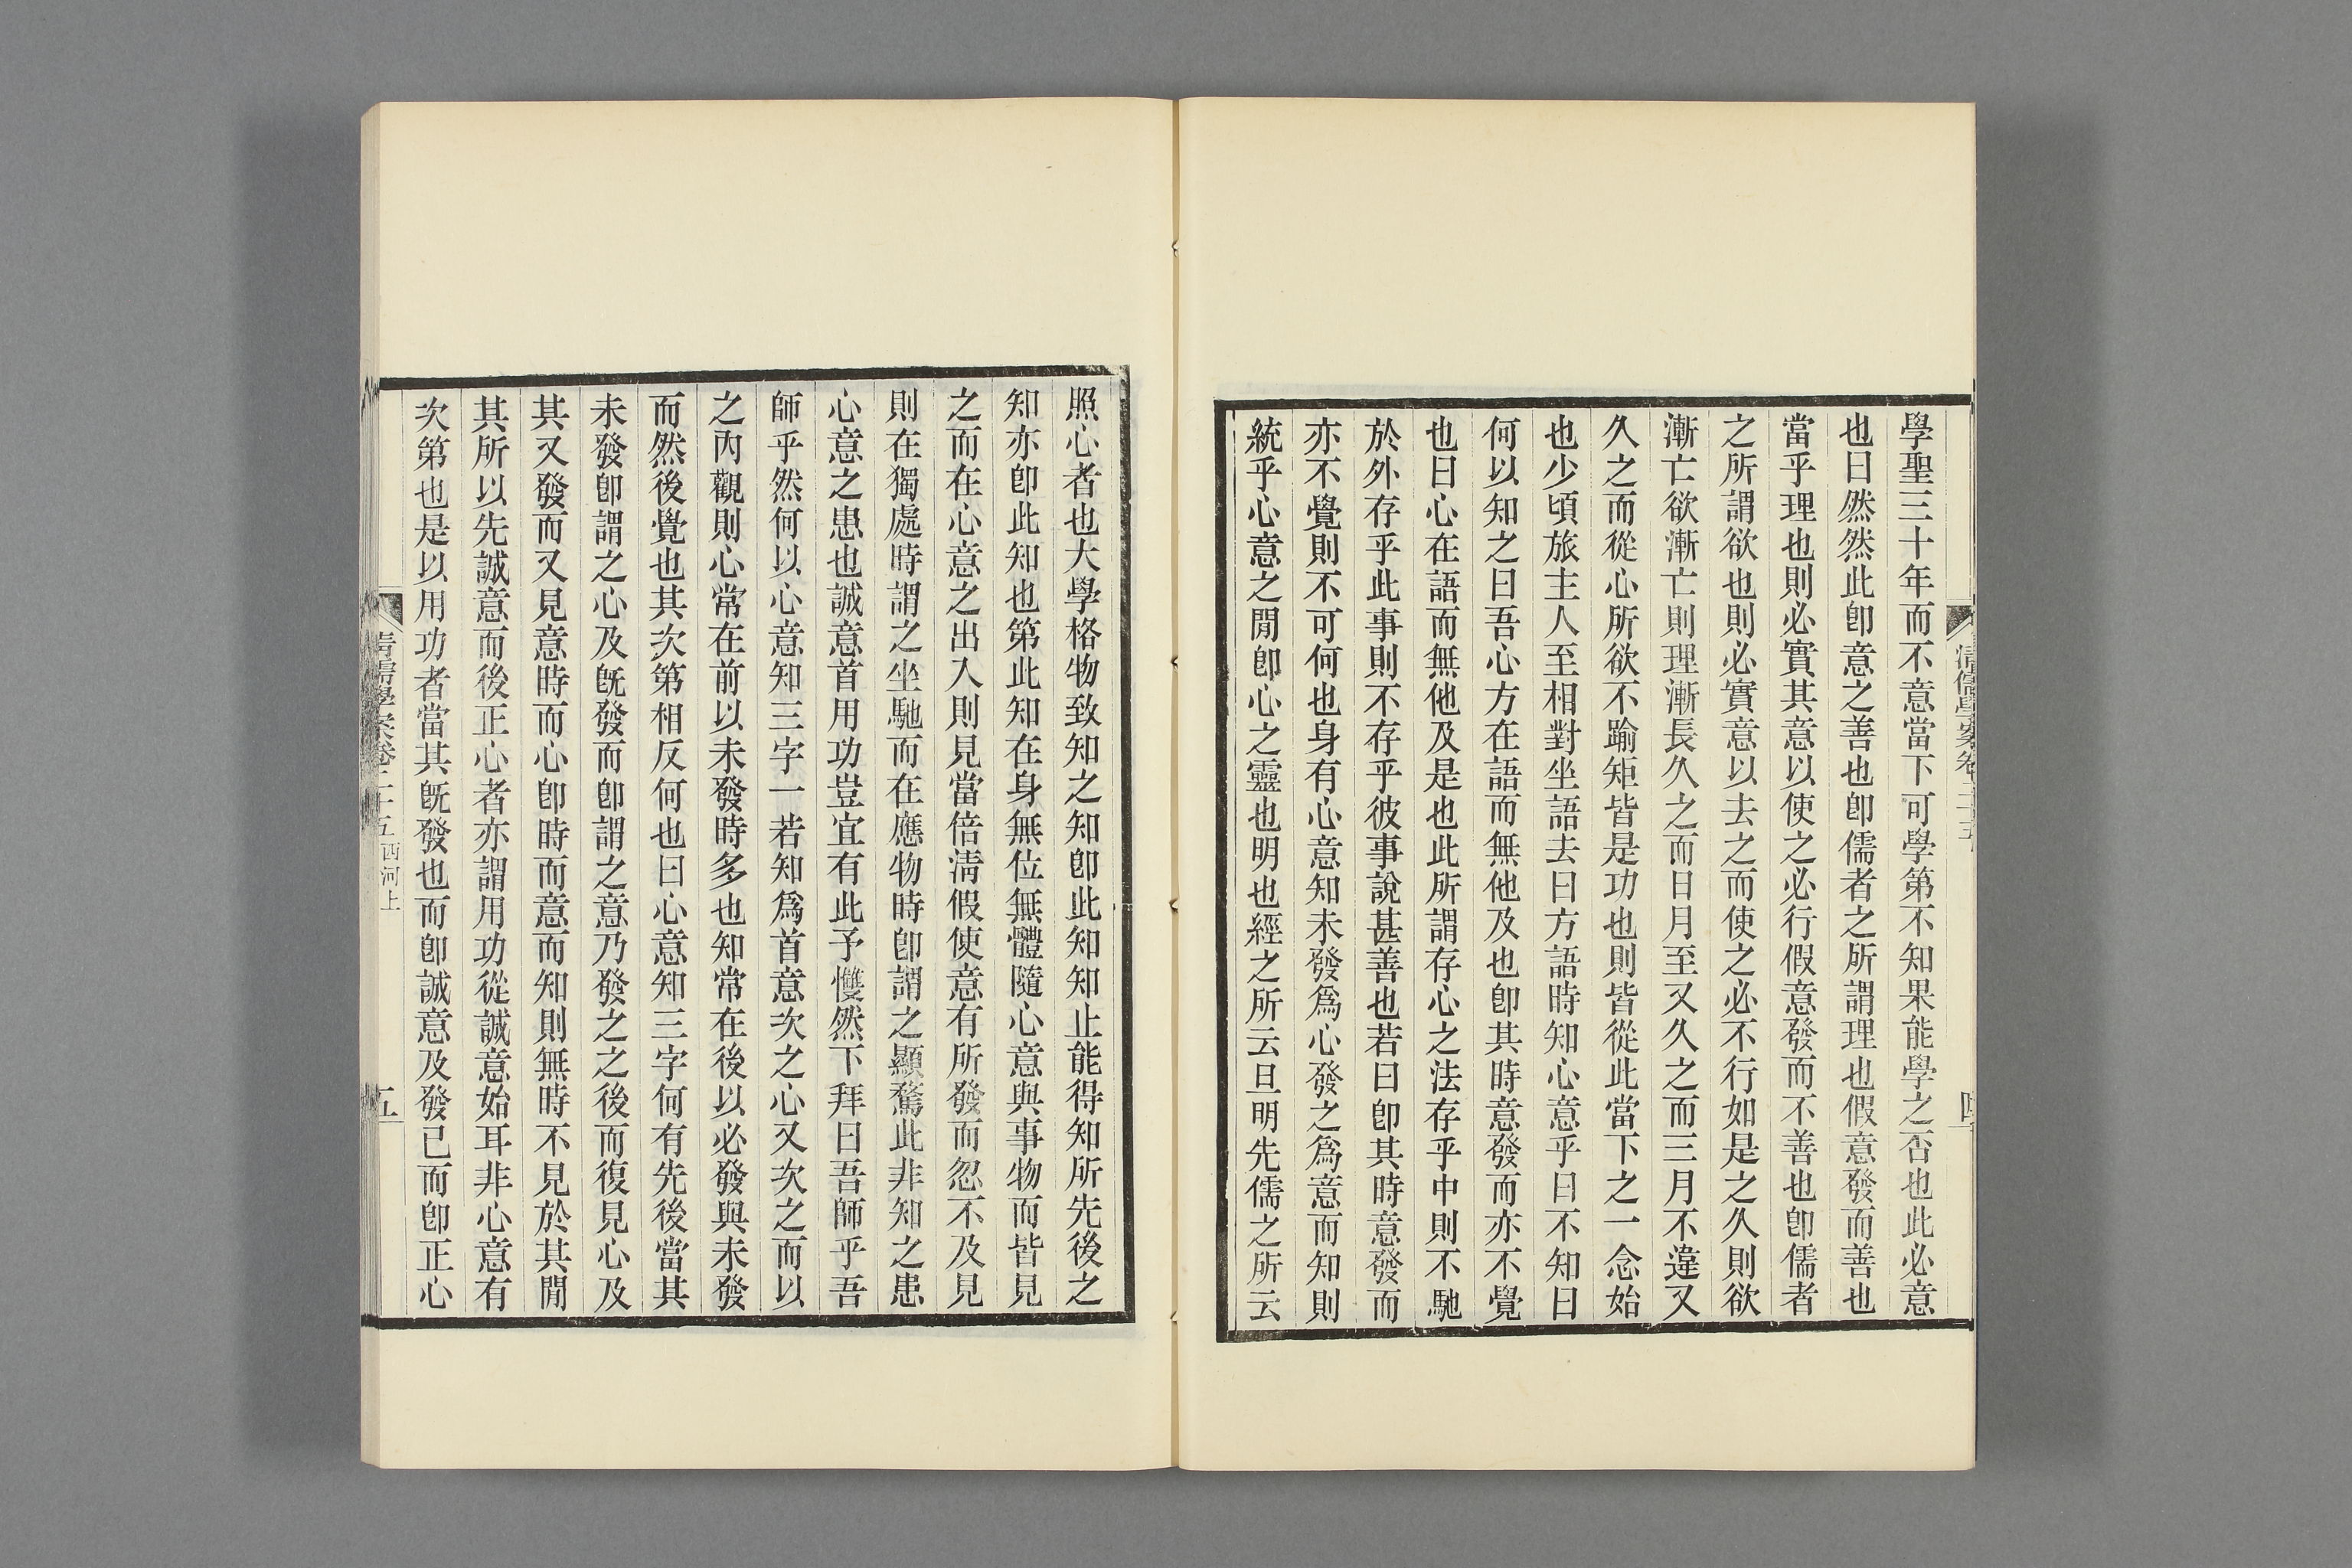 清儒學案卷二十五
四
學聖三十年而不意當下可學第不知果能學之否也此必意
也曰然然此卽意之善也卽儒者之所謂理也假意發而善也
當乎理也則必實其意以使之必行假意發而不善也卽儒者
之所謂欲也則必實意以去之而使之必不行如是之久則欲
漸亡欲漸亡則理漸長久之而日月至又久之而三月不違又
久之而從心所欲不踰矩皆是功也則皆從此當下之一念始
也少頃旅主人至相對坐語去曰方語時知心意乎曰不知曰
何以知之曰吾心方在語而無他及也卽其時意發而亦不覺
也曰心在語而無他及是也此所謂存心之法存乎中則不馳
於外存乎此事則不存乎彼事說甚善也若曰卽其時意發而
亦不覺則不可何也身有心意知未發爲心發之爲意而知則
統乎心意之閒卽心之靈也明也經之所云旦明先儒之所云
照心者也大學格物致知之知卽此知知止能得知所先後之
知亦卽此知也第此知在身無位無體隨心意與事物而皆見
之而在心意之出入則見當倍淸假使意有所發而忽不及見
則在獨處時謂之坐馳而在應物時卽謂之顯騖此非知之患
心意之患也誠意首用功豈宜有此予戄然下拜曰吾師乎吾
師乎然何以心意知三字一若知爲首意次之心又次之而以
之內觀則心常在前以未發時多也知常在後以必發與未發
而然後覺也其次第相反何也曰心意知三字何有先後當其
未發卽謂之心及旣發而卽謂之意乃發之之後而復見心及
其又發而又見意時而心卽時而意而知則無時不見於其閒
其所以先誠意而後正心者亦謂用功從誠意始耳非心意有
次第也是以用功者當其旣發也而卽誠意及發已而卽正心
清儒學案卷二十五 西河上
五